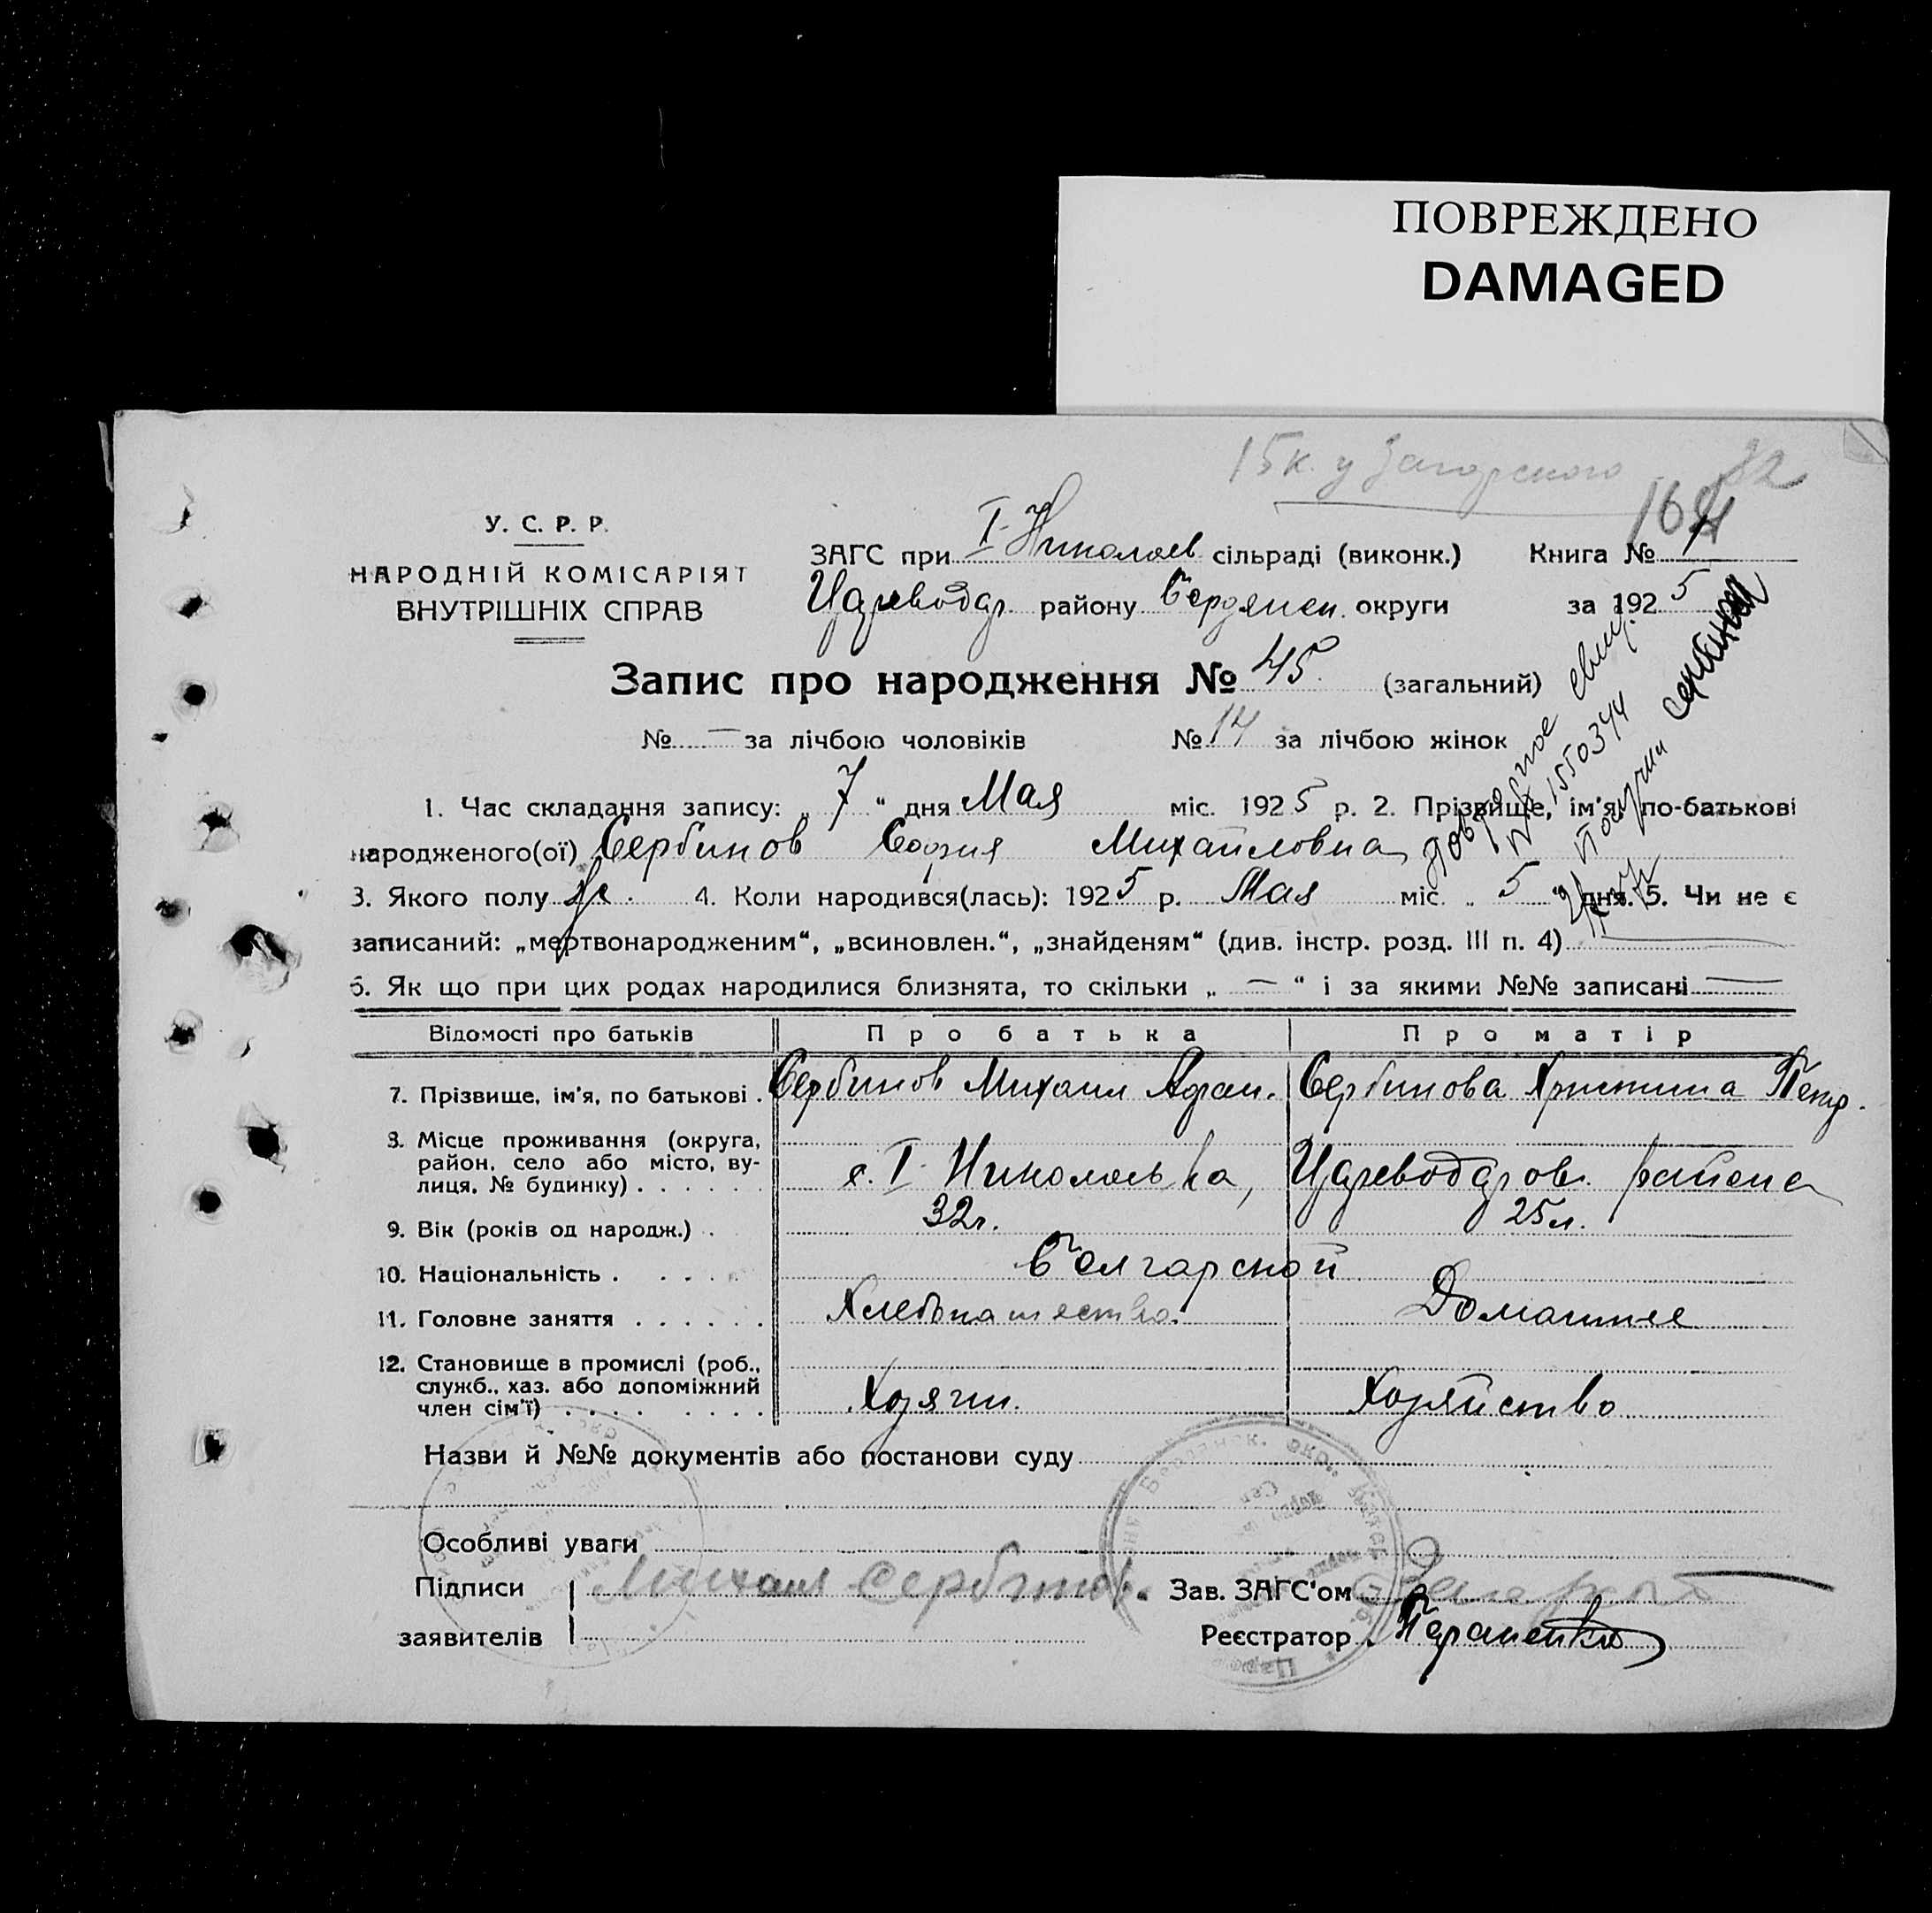 ПОВРЕЖДЕНО
DAMAGED
15к. у Загорского 82
164
У. С. Р. Р.
НАРОДНІЙ КОМІСАРІЯТ
ВНУТРІШНІХ СПРАВ
ЗАГС при I-Николаев сільраді (виконк.) Книга № 1
Цареводар. району Бердянск. округи за 1925
Запис про народження № 45. (загальний)
№ — за лічбою чоловіків № 14 за лічбою жінок
Повторное свид.
№ 1550344
получил Сербинов
1. Час складання запису: „ 7 “ дня Мая міс. 1925 р. 2. Прізвище, ім'я, по-батькові
народженого(ої) Сербинов София Михайловна
3. Якого полу ж. 4. Коли народився(лась): 1925 р. Мая міс. „ 5 “ дня. 5. Чи не є
записаний: „мертвонародженим“, „всиновлен.“, „знайденям“ (див. інстр. розд. III п. 4) —
6. Як що при цих родах народилися близнята, то скільки „ — “ і за якими №№ записані —
Відомості про батьків Про батька Про матір
7. Прізвище, ім'я, по батькові . Сербинов Михаил Афан. Сербинова Христина Петр.
8. Місце проживання (округа, район, село або місто, ву-
лиця, № будинку) . . . . . . с. I-Николаевка, Цареводаров. района
9. Вік (років од народж.) . 32г. 25л.
10. Національність . . . . . Болгарской
11. Головне заняття . . . . . . Хлебопашество. Домашнее
12. Становище в промислі (роб.,
служб., хаз. або допоміжний
член сім'ї) . . . . . . . . . Хозяин. Хозяйство
Назви й №№ документів або постанови суду
Особливі уваги
Підписи Михаил Сербинов. Зав. ЗАГС'ом
заявителів Реєстратор